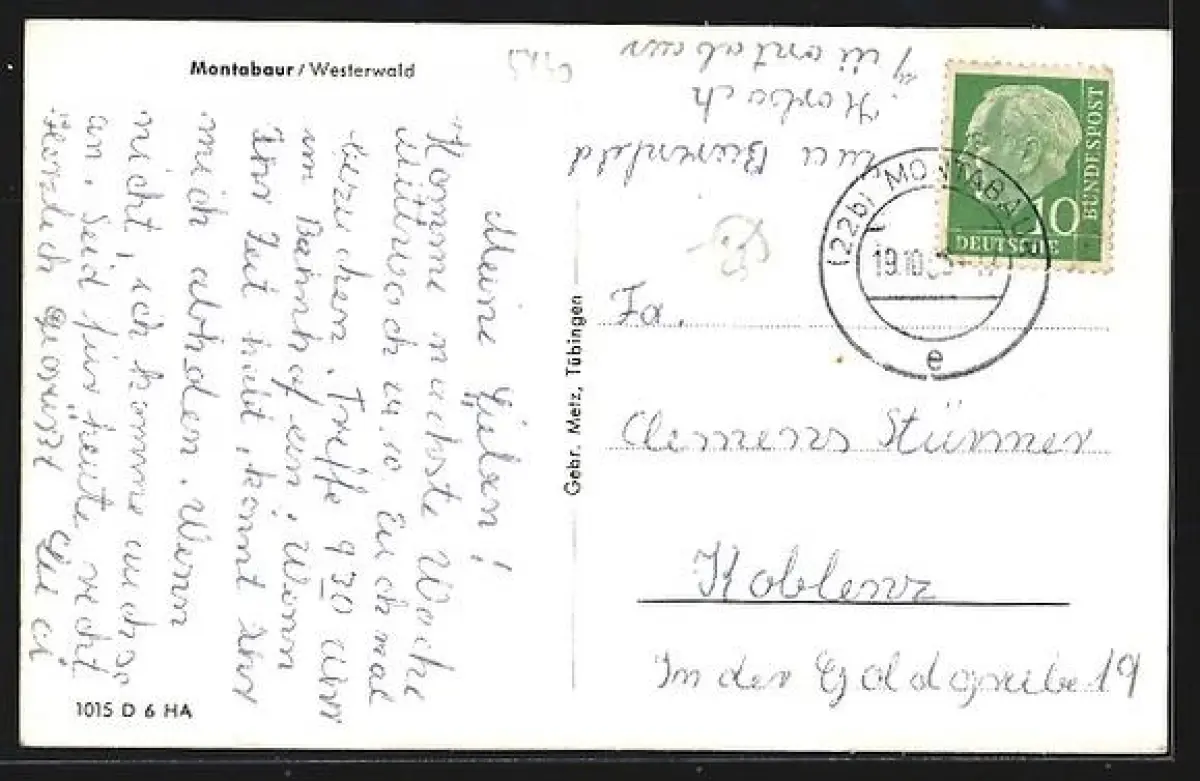 Montabaur / Westerwald
Meine Lieben!
Komme nächste Woche
Mittwoch 21.10. Euch mal
besuchen. Treffe 9 30 Uhr
im Bahnhof ein. Wenn
Ihr Zeit habt, könnt Ihr
mich abholen. Wenn
nicht, ich komme auch so
an. Seid für heute recht
Herzlich gegrüßt
1015 D 6 HA
Gebr. Metz, Tübingen
Horbach
Montabaur
DEUTSCHE BUNDESPOST
10
(22b) MONTABAUR
19.10.
e
Fa.
Clemens Stürmer
Koblenz
In der Goldgrube 19